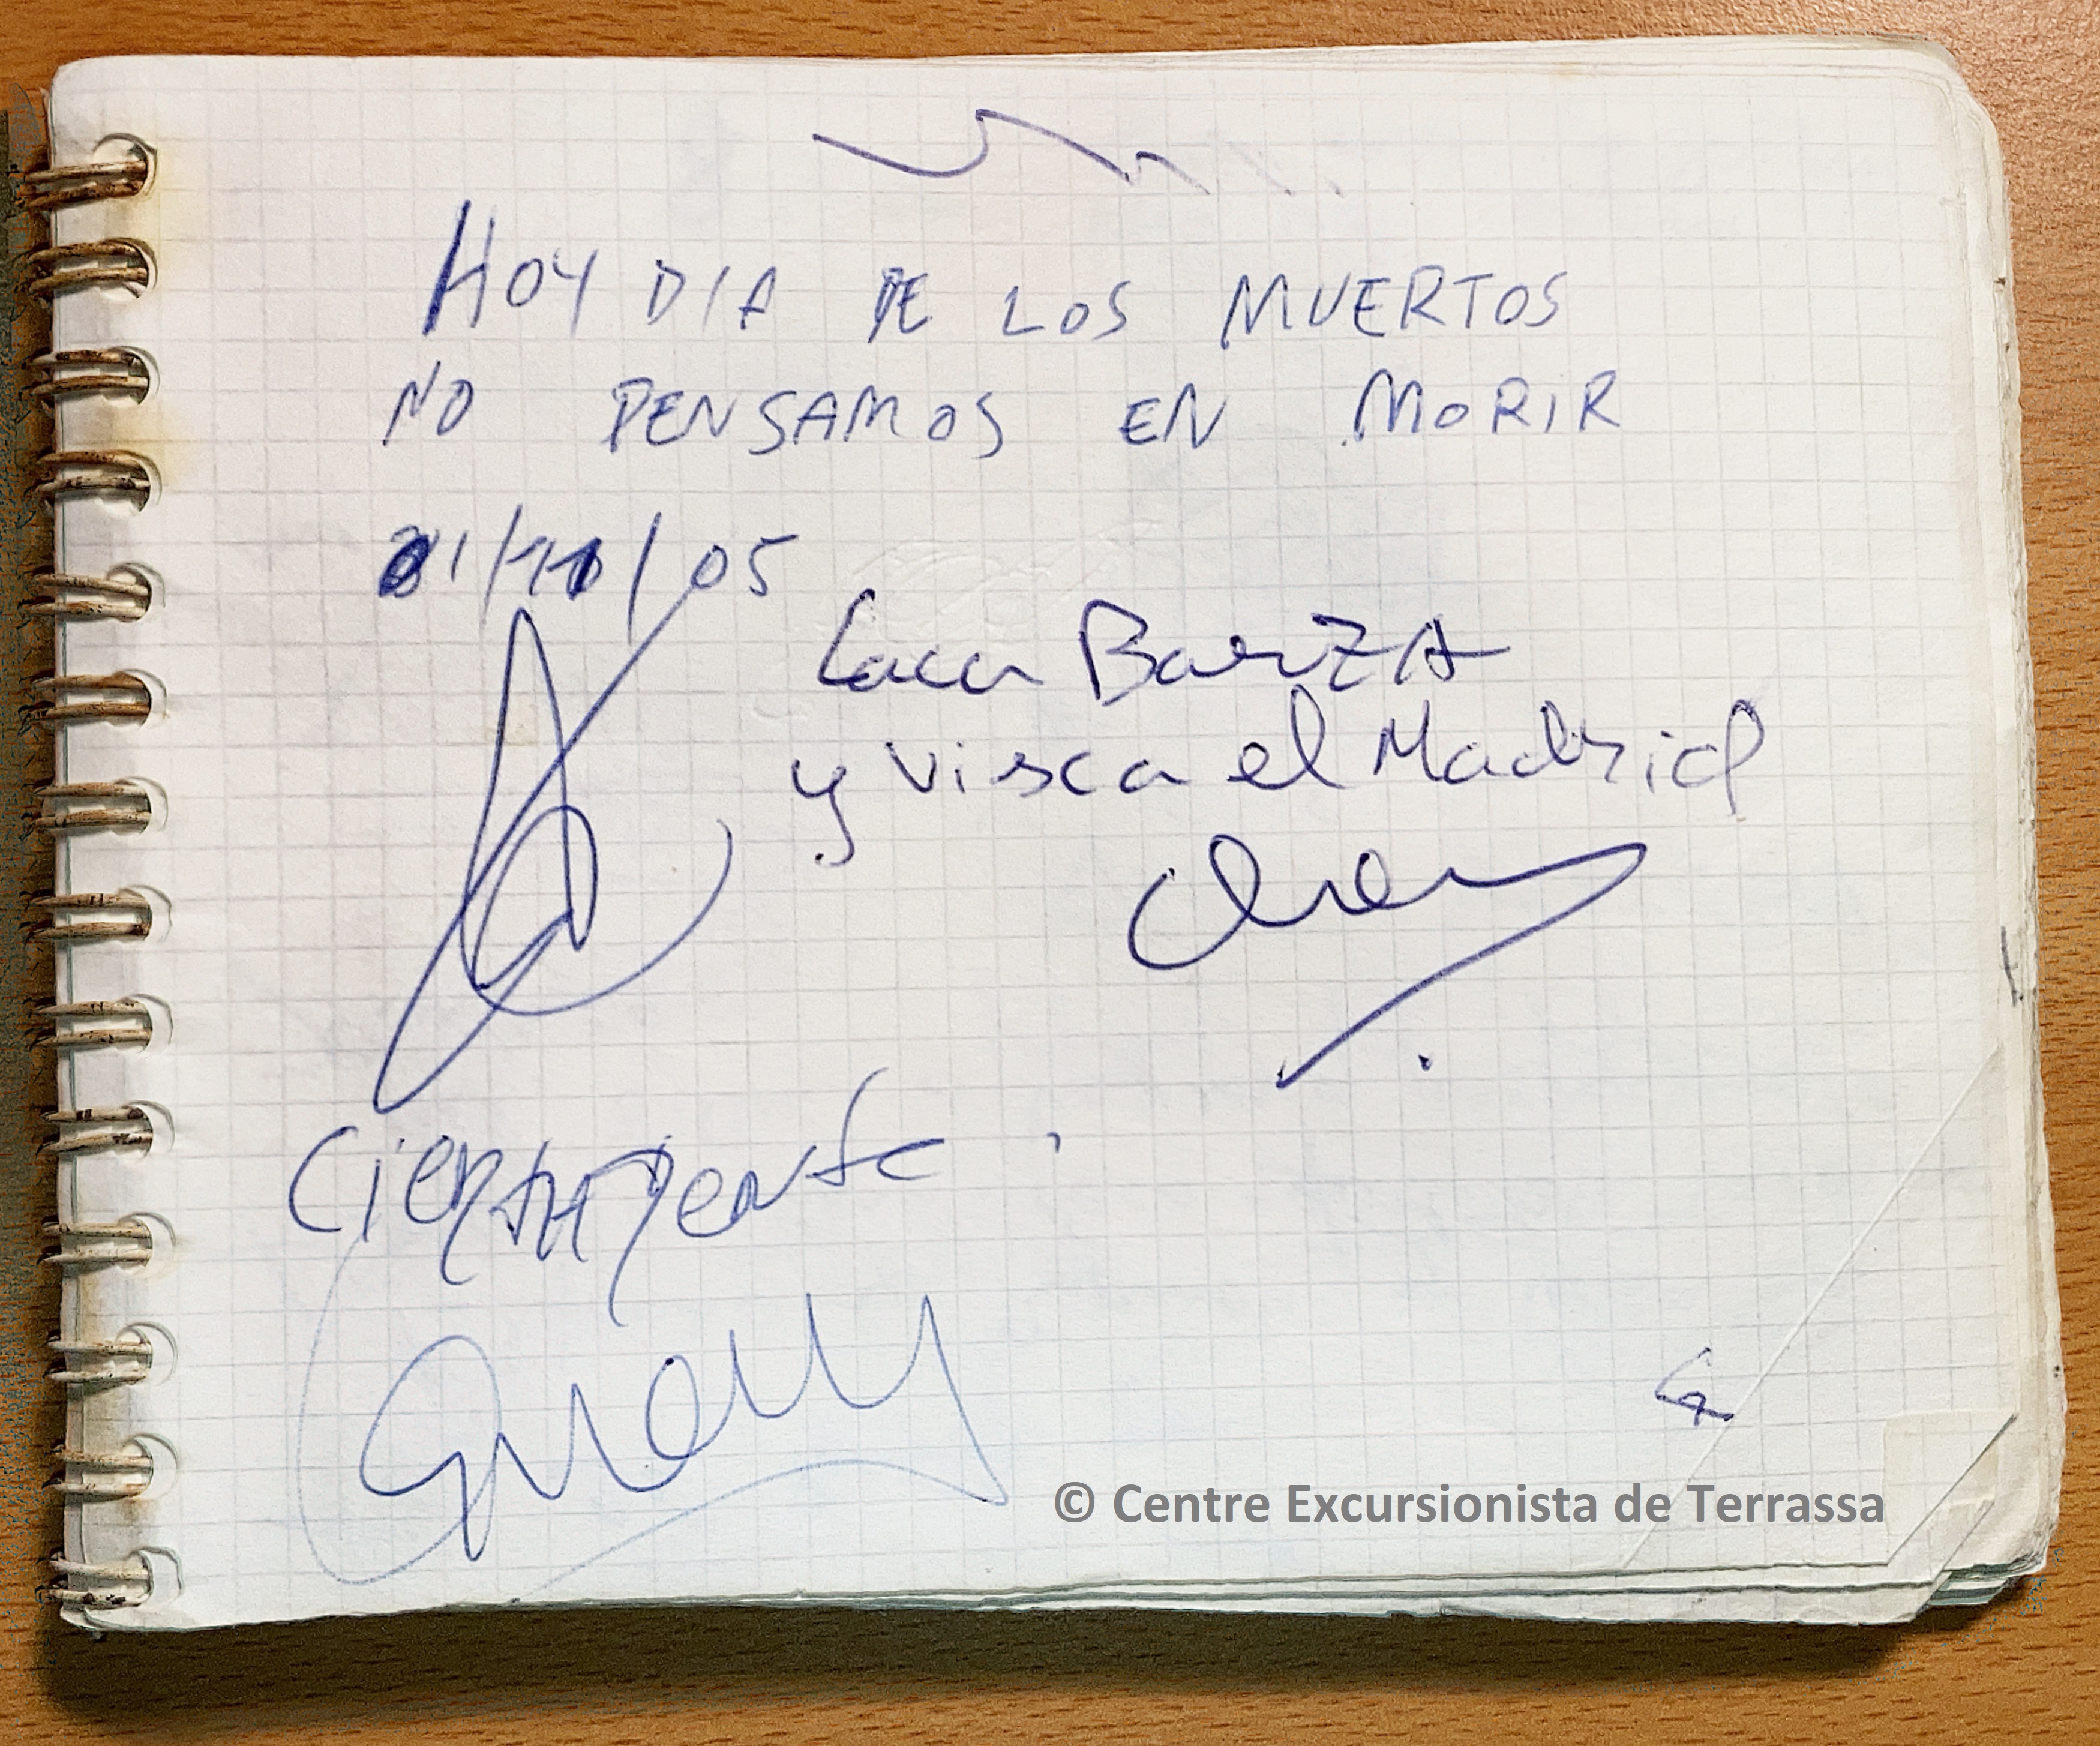 HOY DIA DE LOS MUERTOS
NO PENSAMOS EN MORIR
01/11/05
Caca BarZA
y visca el Madrid
Ciertamente
© Centre Excursionista de Terrassa